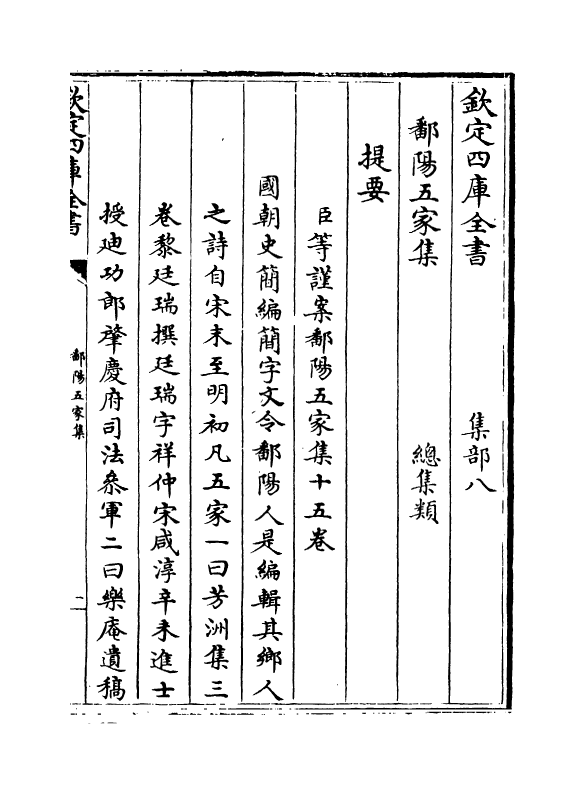 欽定四庫全書　集部八
鄱陽五家集　總集類
提要
臣等謹案鄱陽五家集十五卷
國朝史簡編簡字文令鄱陽人是編輯其鄉人
之詩自宋末至明初凡五家一曰芳洲集三
卷黎廷瑞撰廷瑞字祥仲宋咸淳辛未進士
授迪功郎肇慶府司法叅軍二曰樂庵遺稿
欽定四庫全書
鄱陽五家集